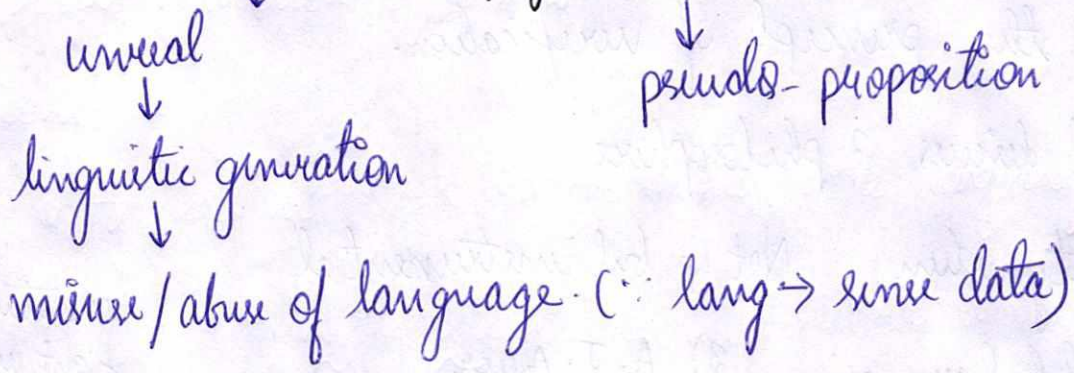 unreal
↓ ↓
pseudo-proposition
linguistic generation
↓
misuse/abuse of language. (∵ lang → sense data)